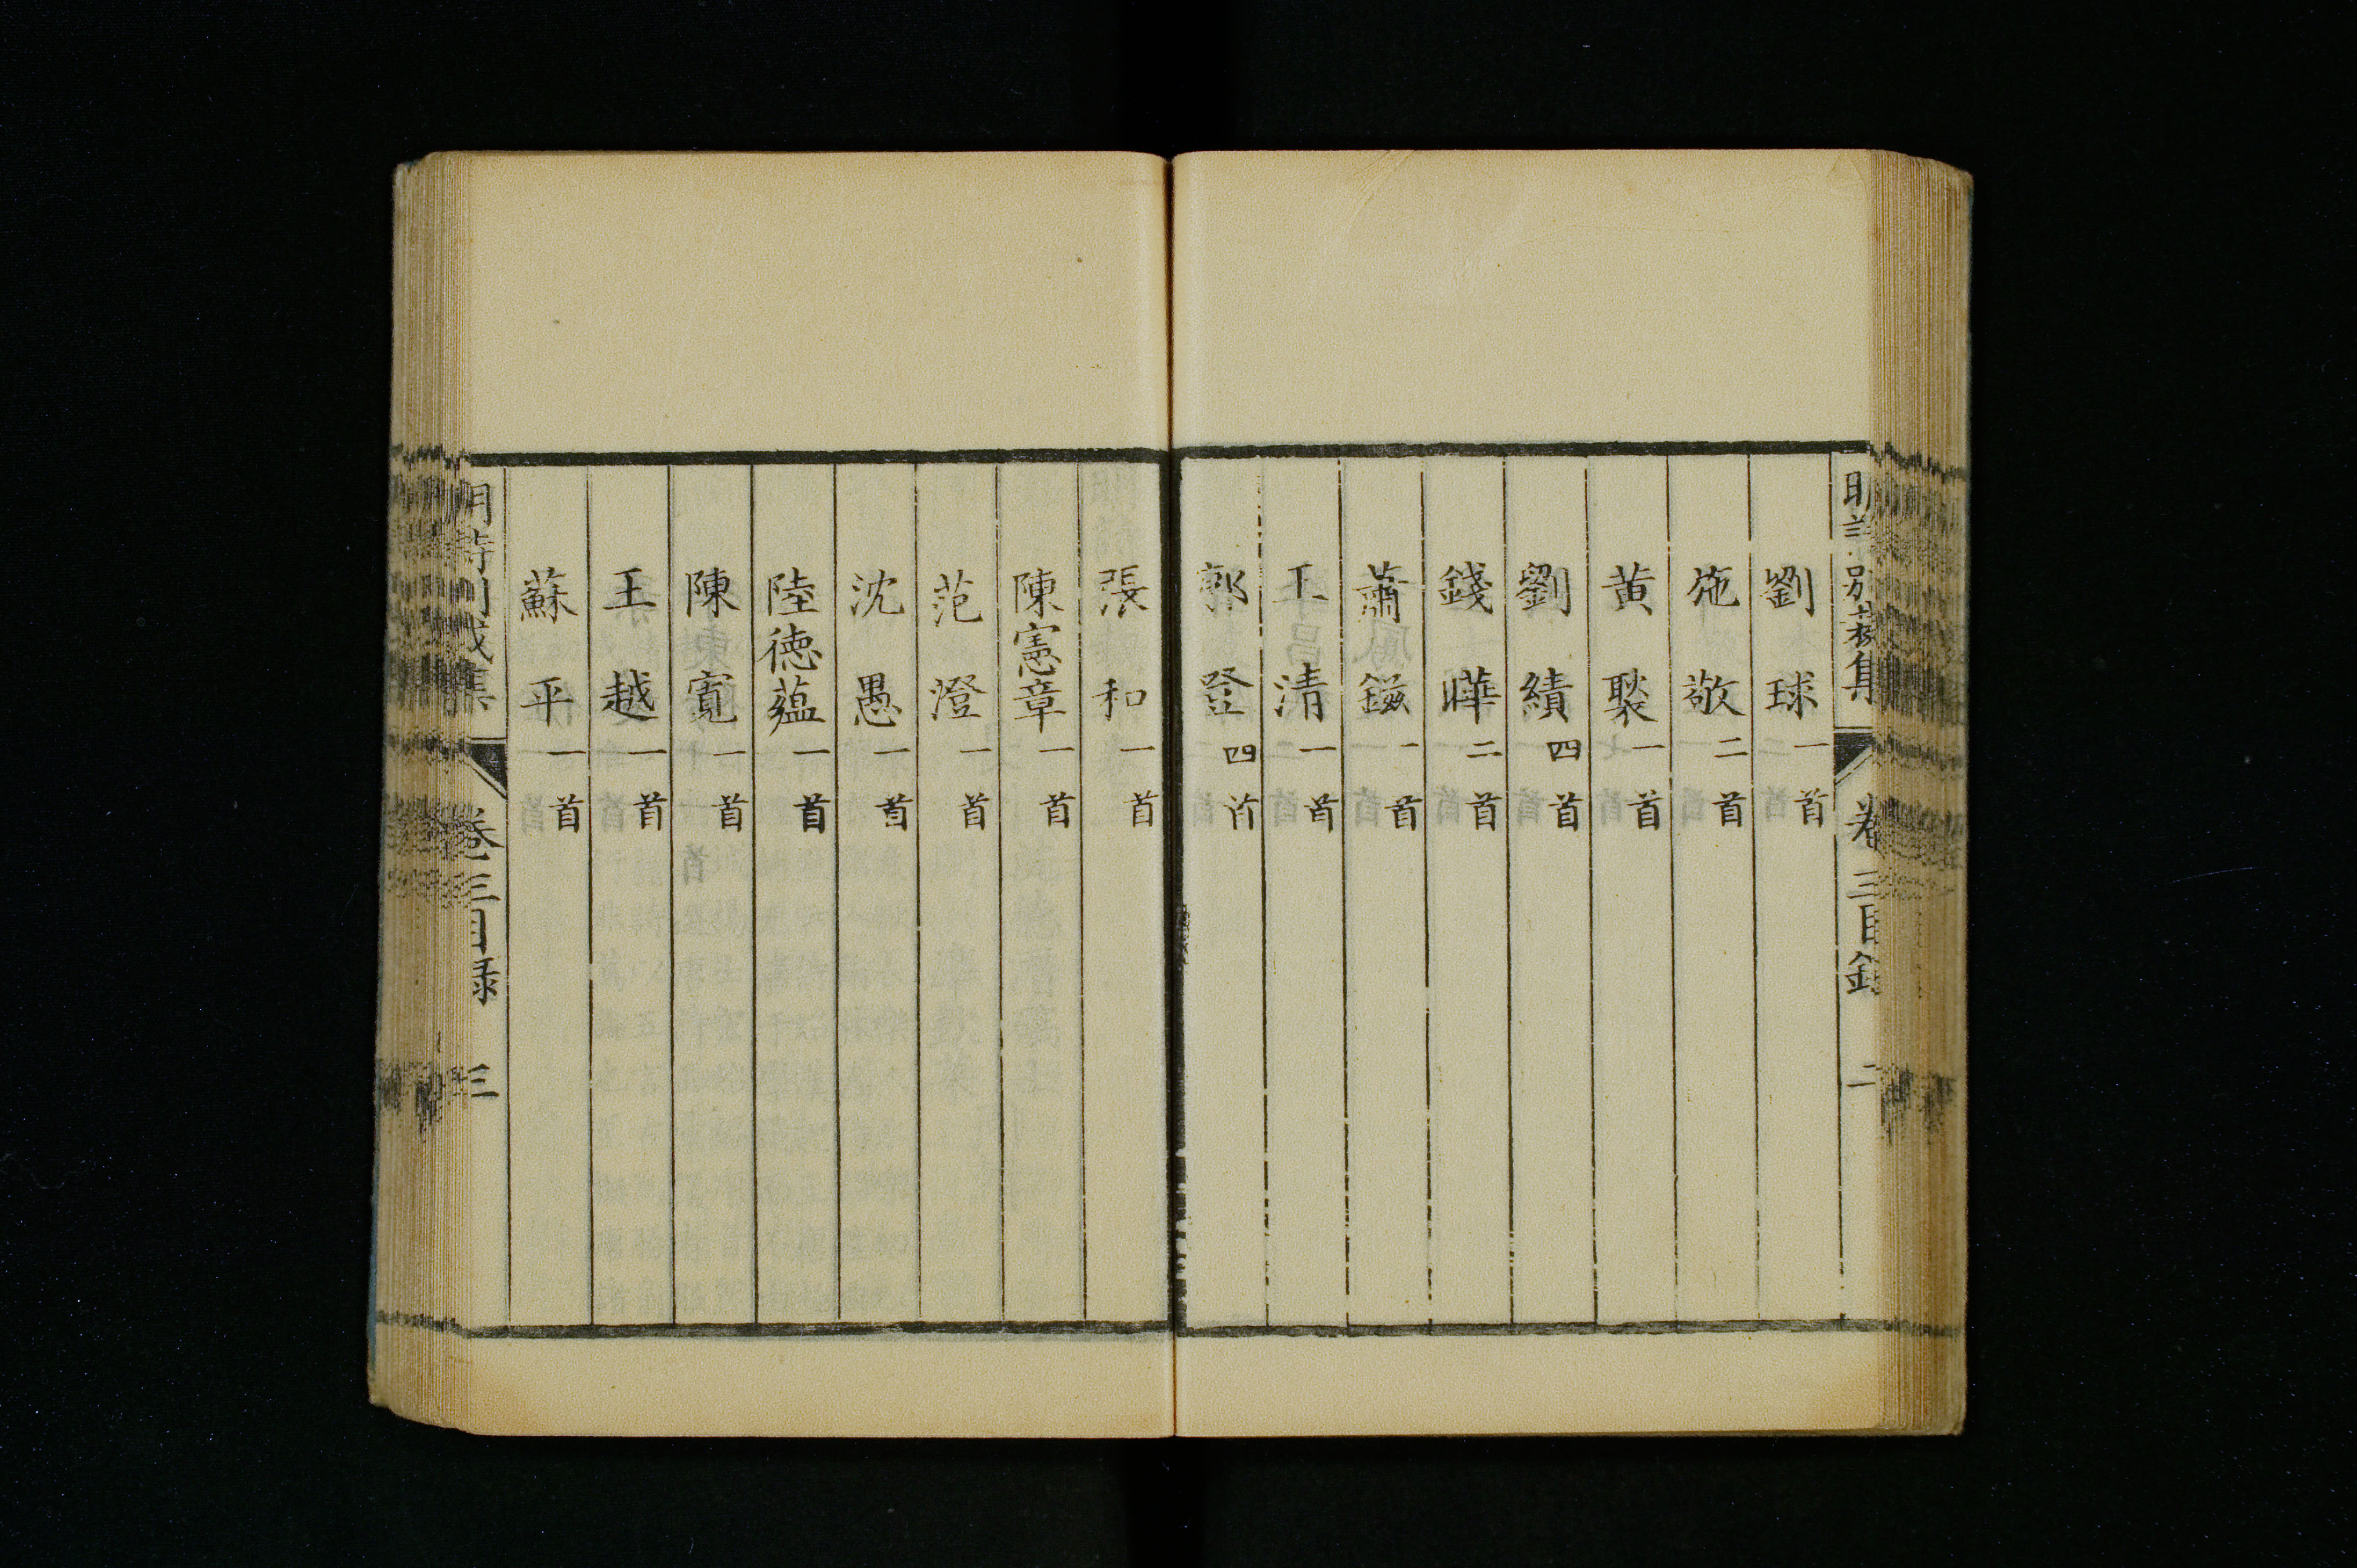 明詩別裁集 卷三目錄 二
劉球 一首
施敬 二首
黄褧 一首
劉績 四首
錢曄 二首
蕭鎡 一首
王清 一首
郭登 四首
張和 一首
陳憲章 一首
范澄 一首
沈愚 一首
陸德蘊 一首
陳寬 一首
王越 一首
蘇平 一首
明詩別裁集 卷三目録 三